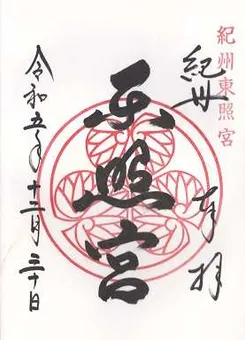 紀州東照宮
紀州 奉拝
東照宮
令和五年十二月三十日